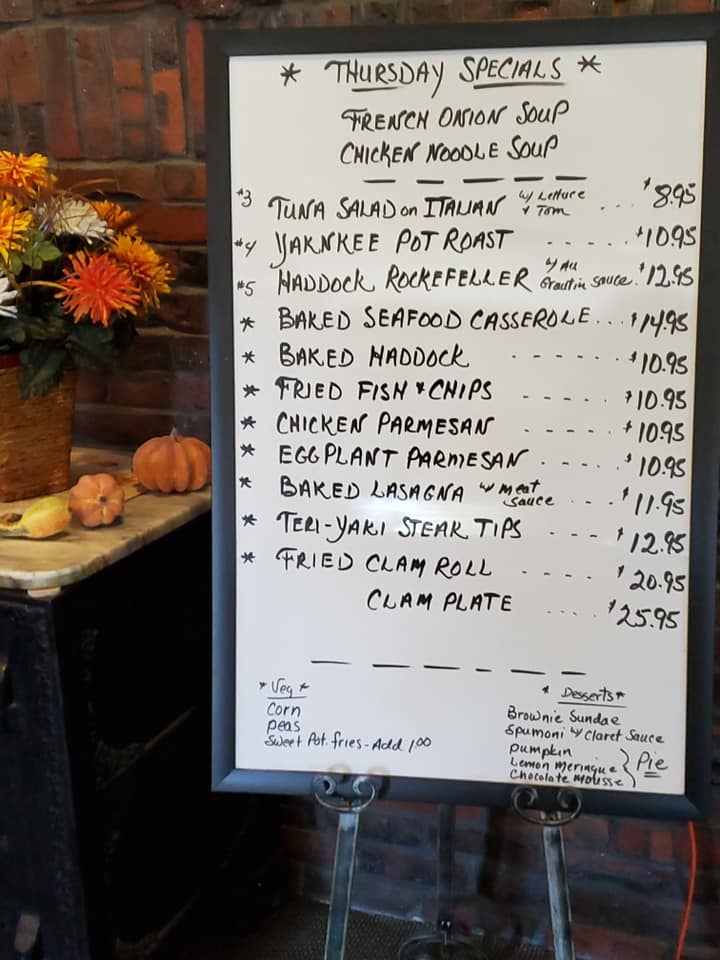 * THURSDAY SPECIALS *
FRENCH ONION SOUP
CHICKEN NOODLE SOUP
#3 TUNA SALAD on ITALIAN w/ Lettuce + Tom ... $8.95
#4 YAKNKEE POT ROAST - - - - - $10.95
#5 HADDOCK ROCKEFELLER w/ Au Grautin sauce. $12.95
* BAKED SEAFOOD CASSEROLE... $14.95
* BAKED HADDOCK - - - - - - $10.95
* FRIED FISH + CHIPS - - - - - $10.95
* CHICKEN PARMESAN - - - - - $10.95
* EGGPLANT PARMESAN - - - - $10.95
* BAKED LASAGNA w/ meat sauce - - - $11.95
* TERI-YAKI STEAK TIPS - - - $12.95
* FRIED CLAM ROLL - - - - $20.95
CLAM PLATE .... $25.95
* Veg *
Corn
peas
Sweet Pot. fries - Add 1.00
* Desserts *
Brownie Sundae
Spumoni w/ Claret Sauce
pumpkin
Lemon Meringue } Pie
Chocolate Mousse